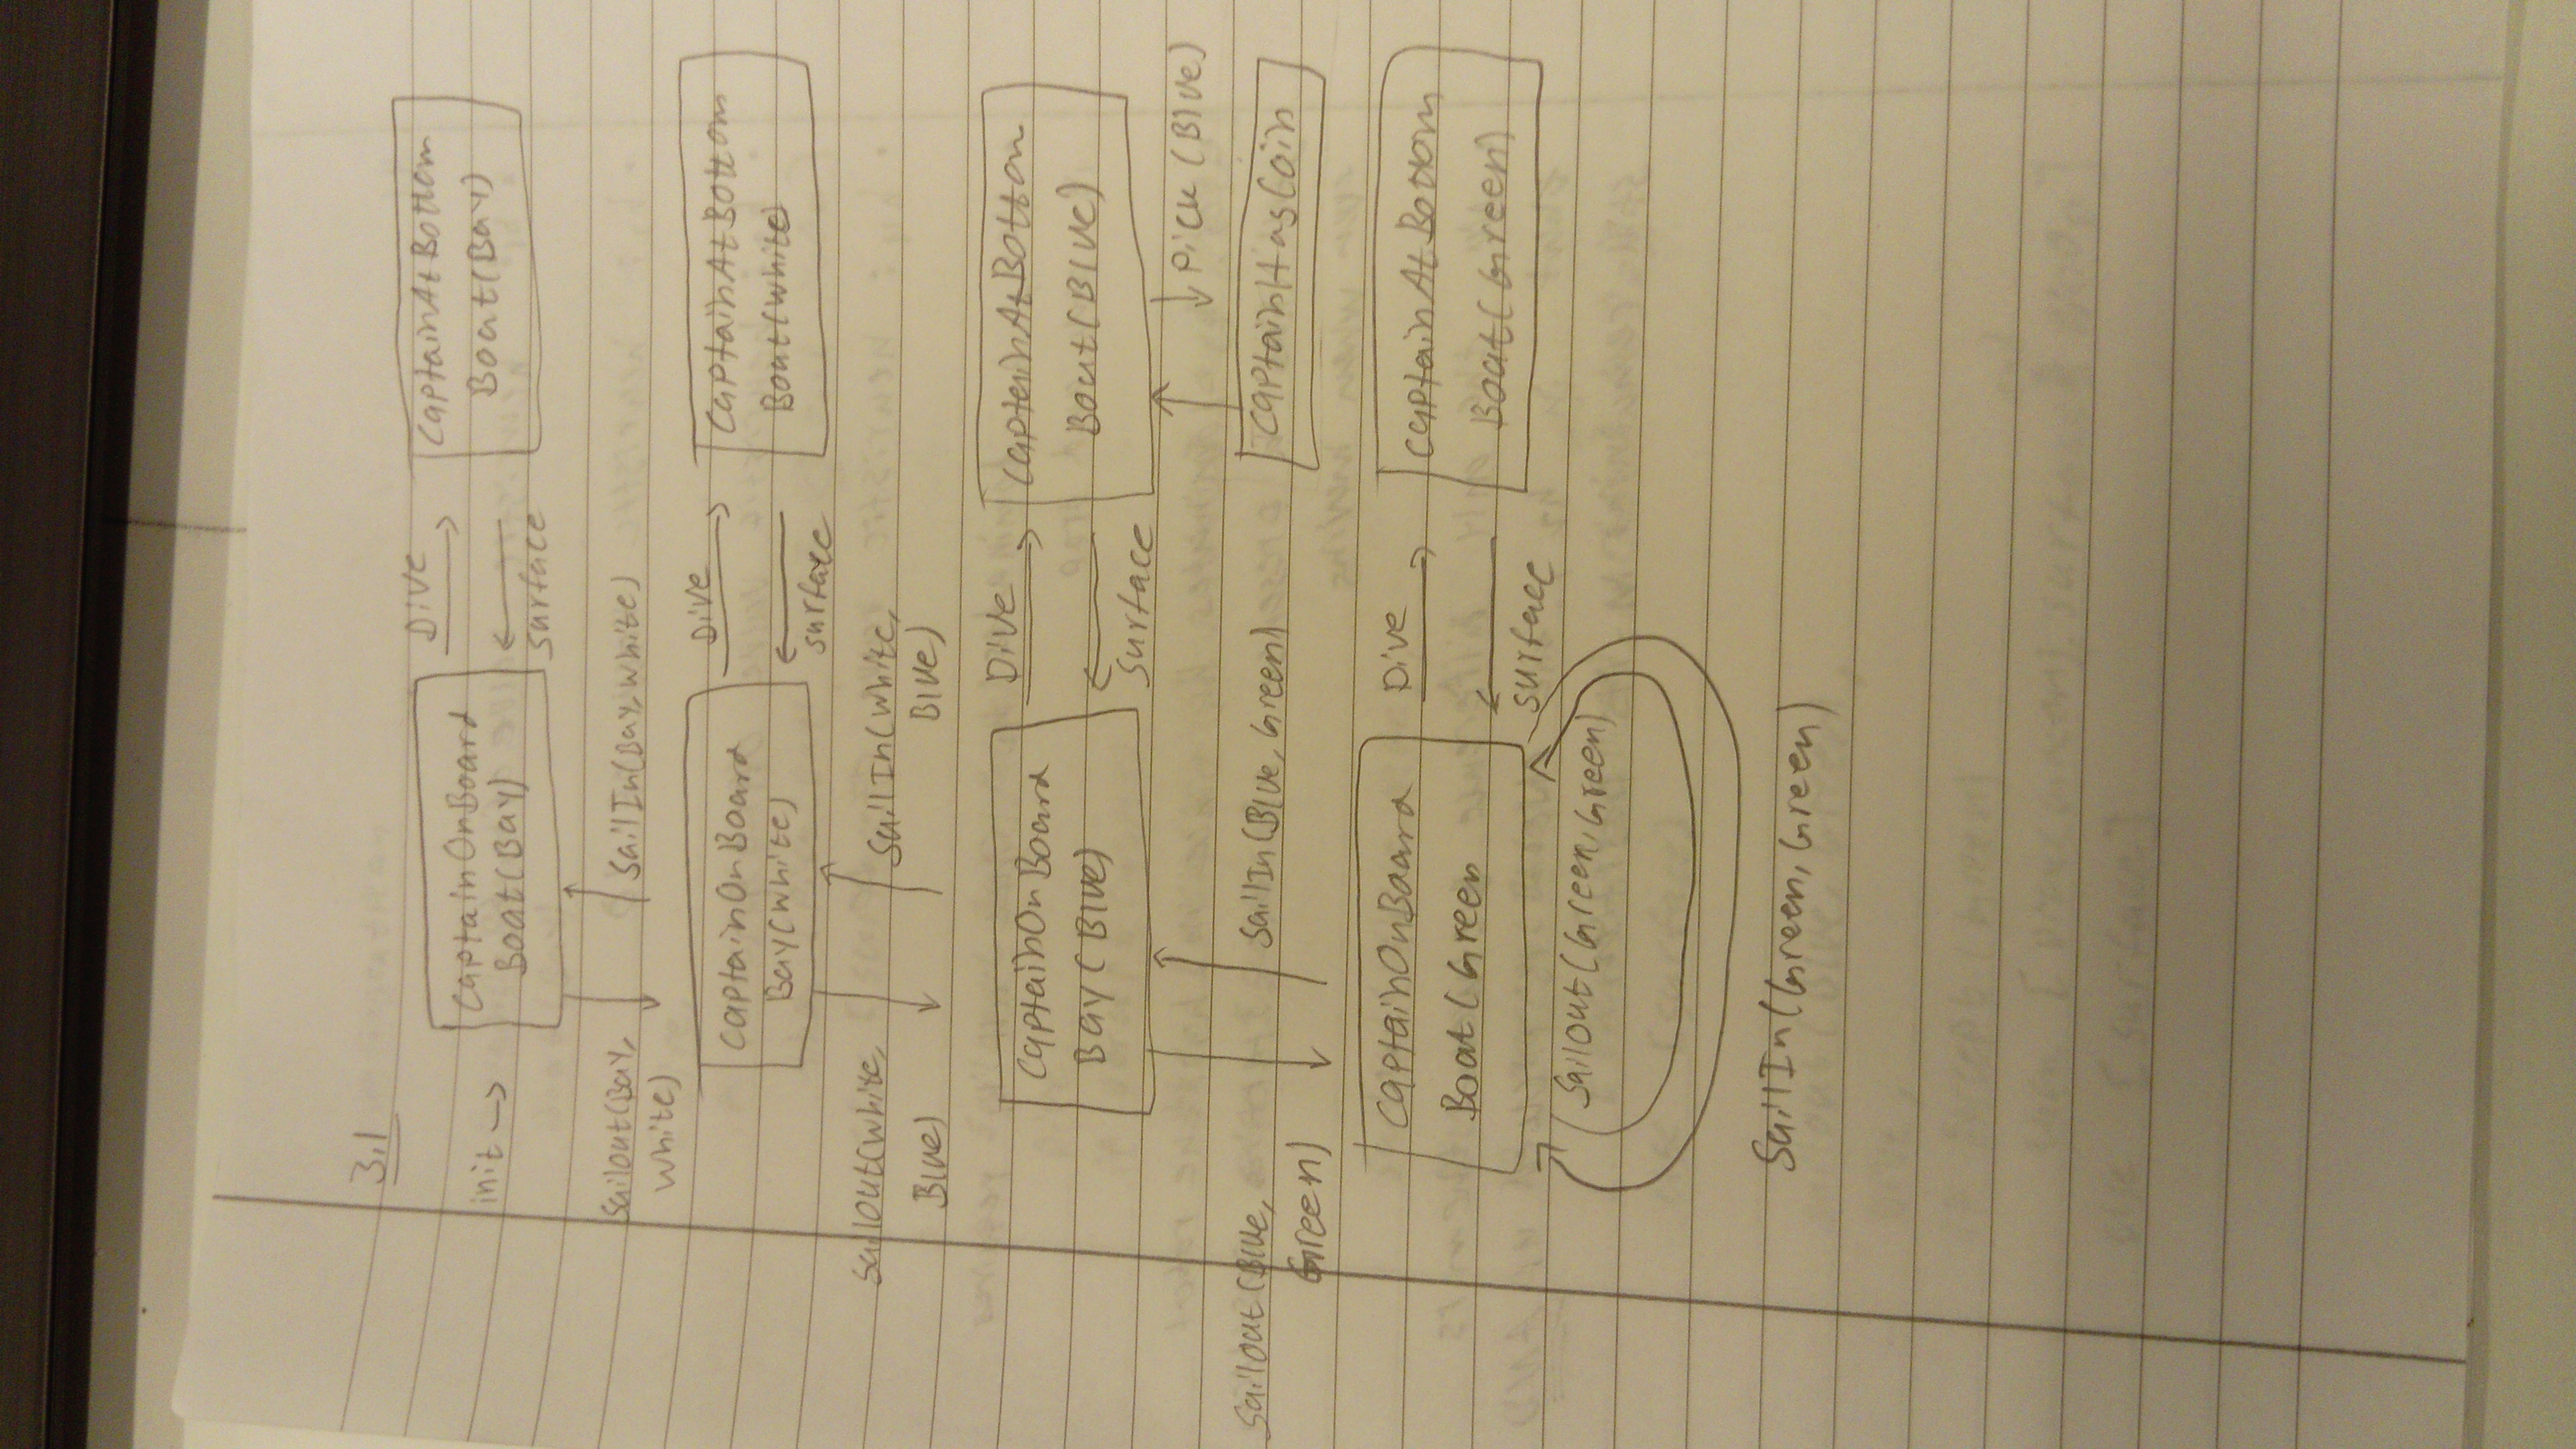 3.1
init →
CaptainOnBoard
Boat(Bay)
Dive
surface
CaptainAtBottom
Boat(Bay)
Sailout(Bay,
White)
SailIn(Bay, White)
CaptainOnBoard
Bay(White)
Dive
surface
CaptainAtBottom
Boat(White)
Sailout(White,
Blue)
SailIn(White,
Blue)
CaptainOnBoard
Bay(Blue)
Dive
Surface
CaptainAtBottom
Boat(Blue)
Pick (Blue)
CaptainHasCoin
Sailout(Blue,
Green)
SailIn(Blue, Green)
CaptainOnBoard
Boat(Green
Dive
surface
CaptainAtBottom
Boat(Green)
Sailout(Green, Green)
SailIn(Green, Green)